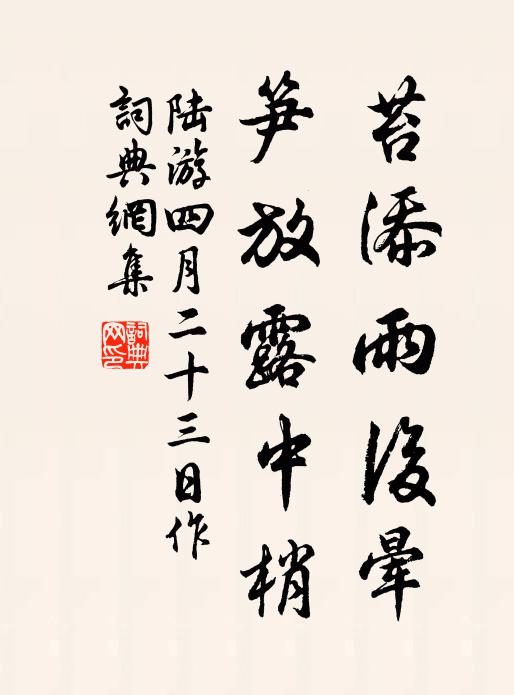 苔添雨後暈
笋放露中梢
陆游四月二十三日作
詞典網集
詞典網印